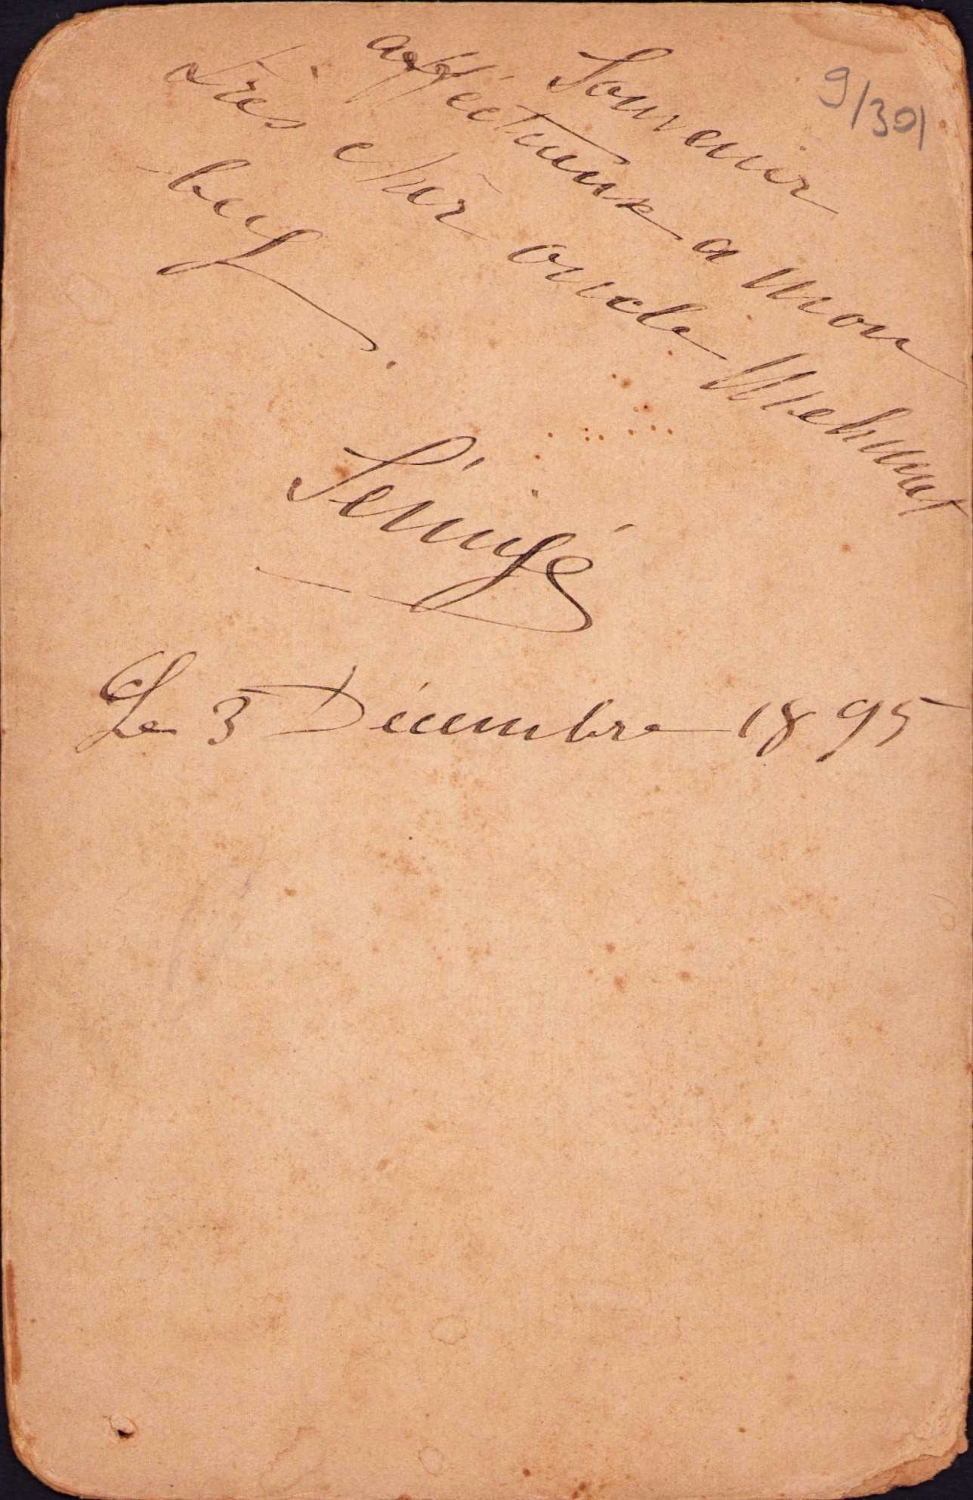 9/301
Souvenir
affectueux a mon
très cher oncle Mehmet
bey.
Le 3 Décembre 1895